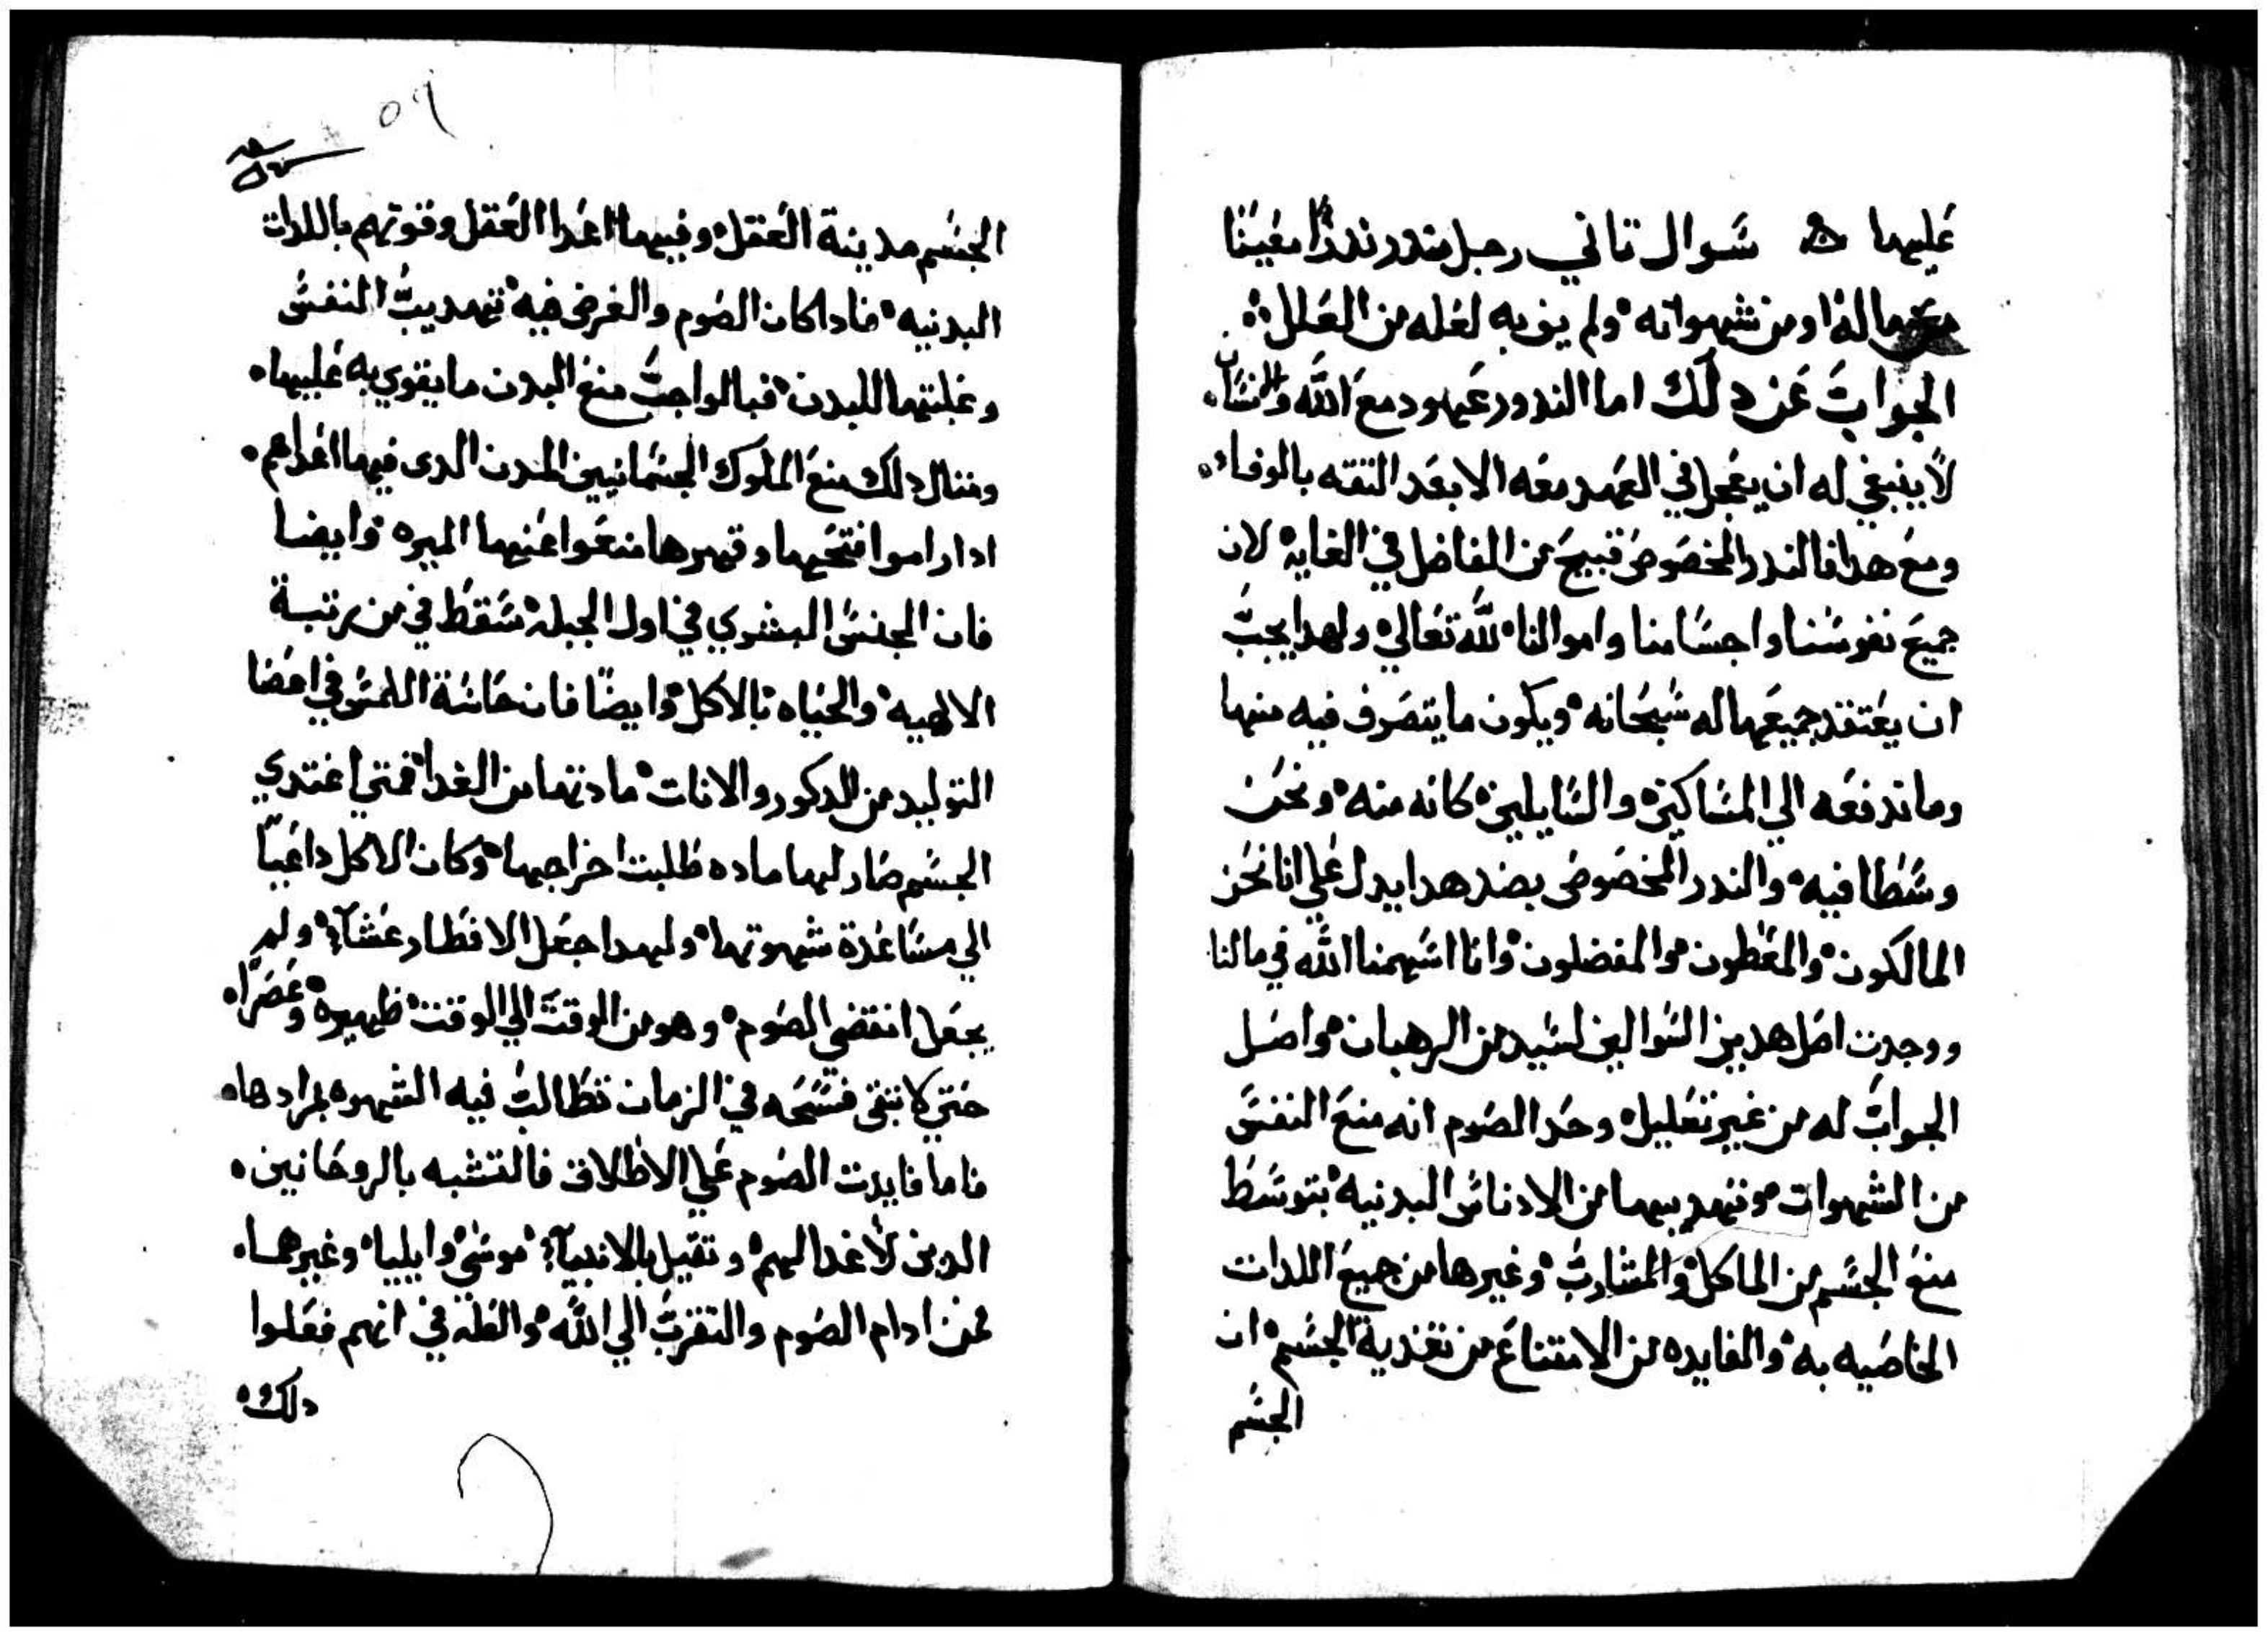 عليها ۞ سوال تاني رجل نندر ندرًا معينا
من ماله او من شهواته ولم يف به لعله من العلل
الجواب عن دلك اما الندور عهود مع الله والانسان
لا ينبغي له ان يعجل في العهد معه الا بعد التقه بالوفاء
ومع هدا فالندر المخصوص قبيح من الفاضل في الغايه لان
جميع نفوسنا واجسامنا واموالنا لله تعالي ولهدا يجب
ان يعتقد جميعها له سبحانه ويكون ما يتصرف فيه منها
وما ندفعه الي المساكين والسايلين كانه منه ونحن
وسطا فيه والندر المخصوص بضد هدا يدل علي انا نحن
المالكون والمعطون والمفضلون وانا اسهمنا الله في مالنا
ووجدت اصل هدين السوالين لسيد من الرهبان واصل
الجواب له من غير تعليل وحد الصوم انه منع النفس
من الشهوات وتهديبها من الادناس البدنيه بتوسط
منع الجسم من الماكل والمشارب وغيرها من جميع اللدات
الخاصيه به والفايده من الامتناع من تغدية الجسم ان
الجسم
٥٩
الجسم مدينة العقل وفيها اعدا العقل وقوتهم باللدات
البدنيه فادا كان الصوم والغرض فيه تهديب النفس
وغلبتها للبدن فبالواجب منع البدن ما يقوي به عليها
ومتال دلك منع الملوك الجسمانيين المدن الدى فيها اعداهم
ادا راموا فتحها وقهرها منعوا عنها الميره وايضا
فان الجنس البشري في اول الجبلة سقط في من رتبة
الالهيه والحياه بالاكل وايضًا فان حاسة اللمس في اعضا
التوليد من الدكور والانات مادتها من الغدا فمتي اغتدي
الجسم صار لها ماده طلبت اخراجها وكان الاكل داعيًا
الي مساعدة شهوتها ولهدا جعل الافطار عشآء ولم
يجعل انقضي الصوم وهو من الوقت الي الوقت ظهيره وعصرًا
حتي لا تبقى فسحه في الزمان تطالب فيه الشهوه بمرادها
فاما فايدت الصوم علي الاطلاق فالتشبه بالروحانين
الدين لا غدا لهم وتقيل بالانبيآء موسي وايليا وغيرهما
ممن ادام الصوم والتقرب الي الله والعله في انهم فعلوا
دلك